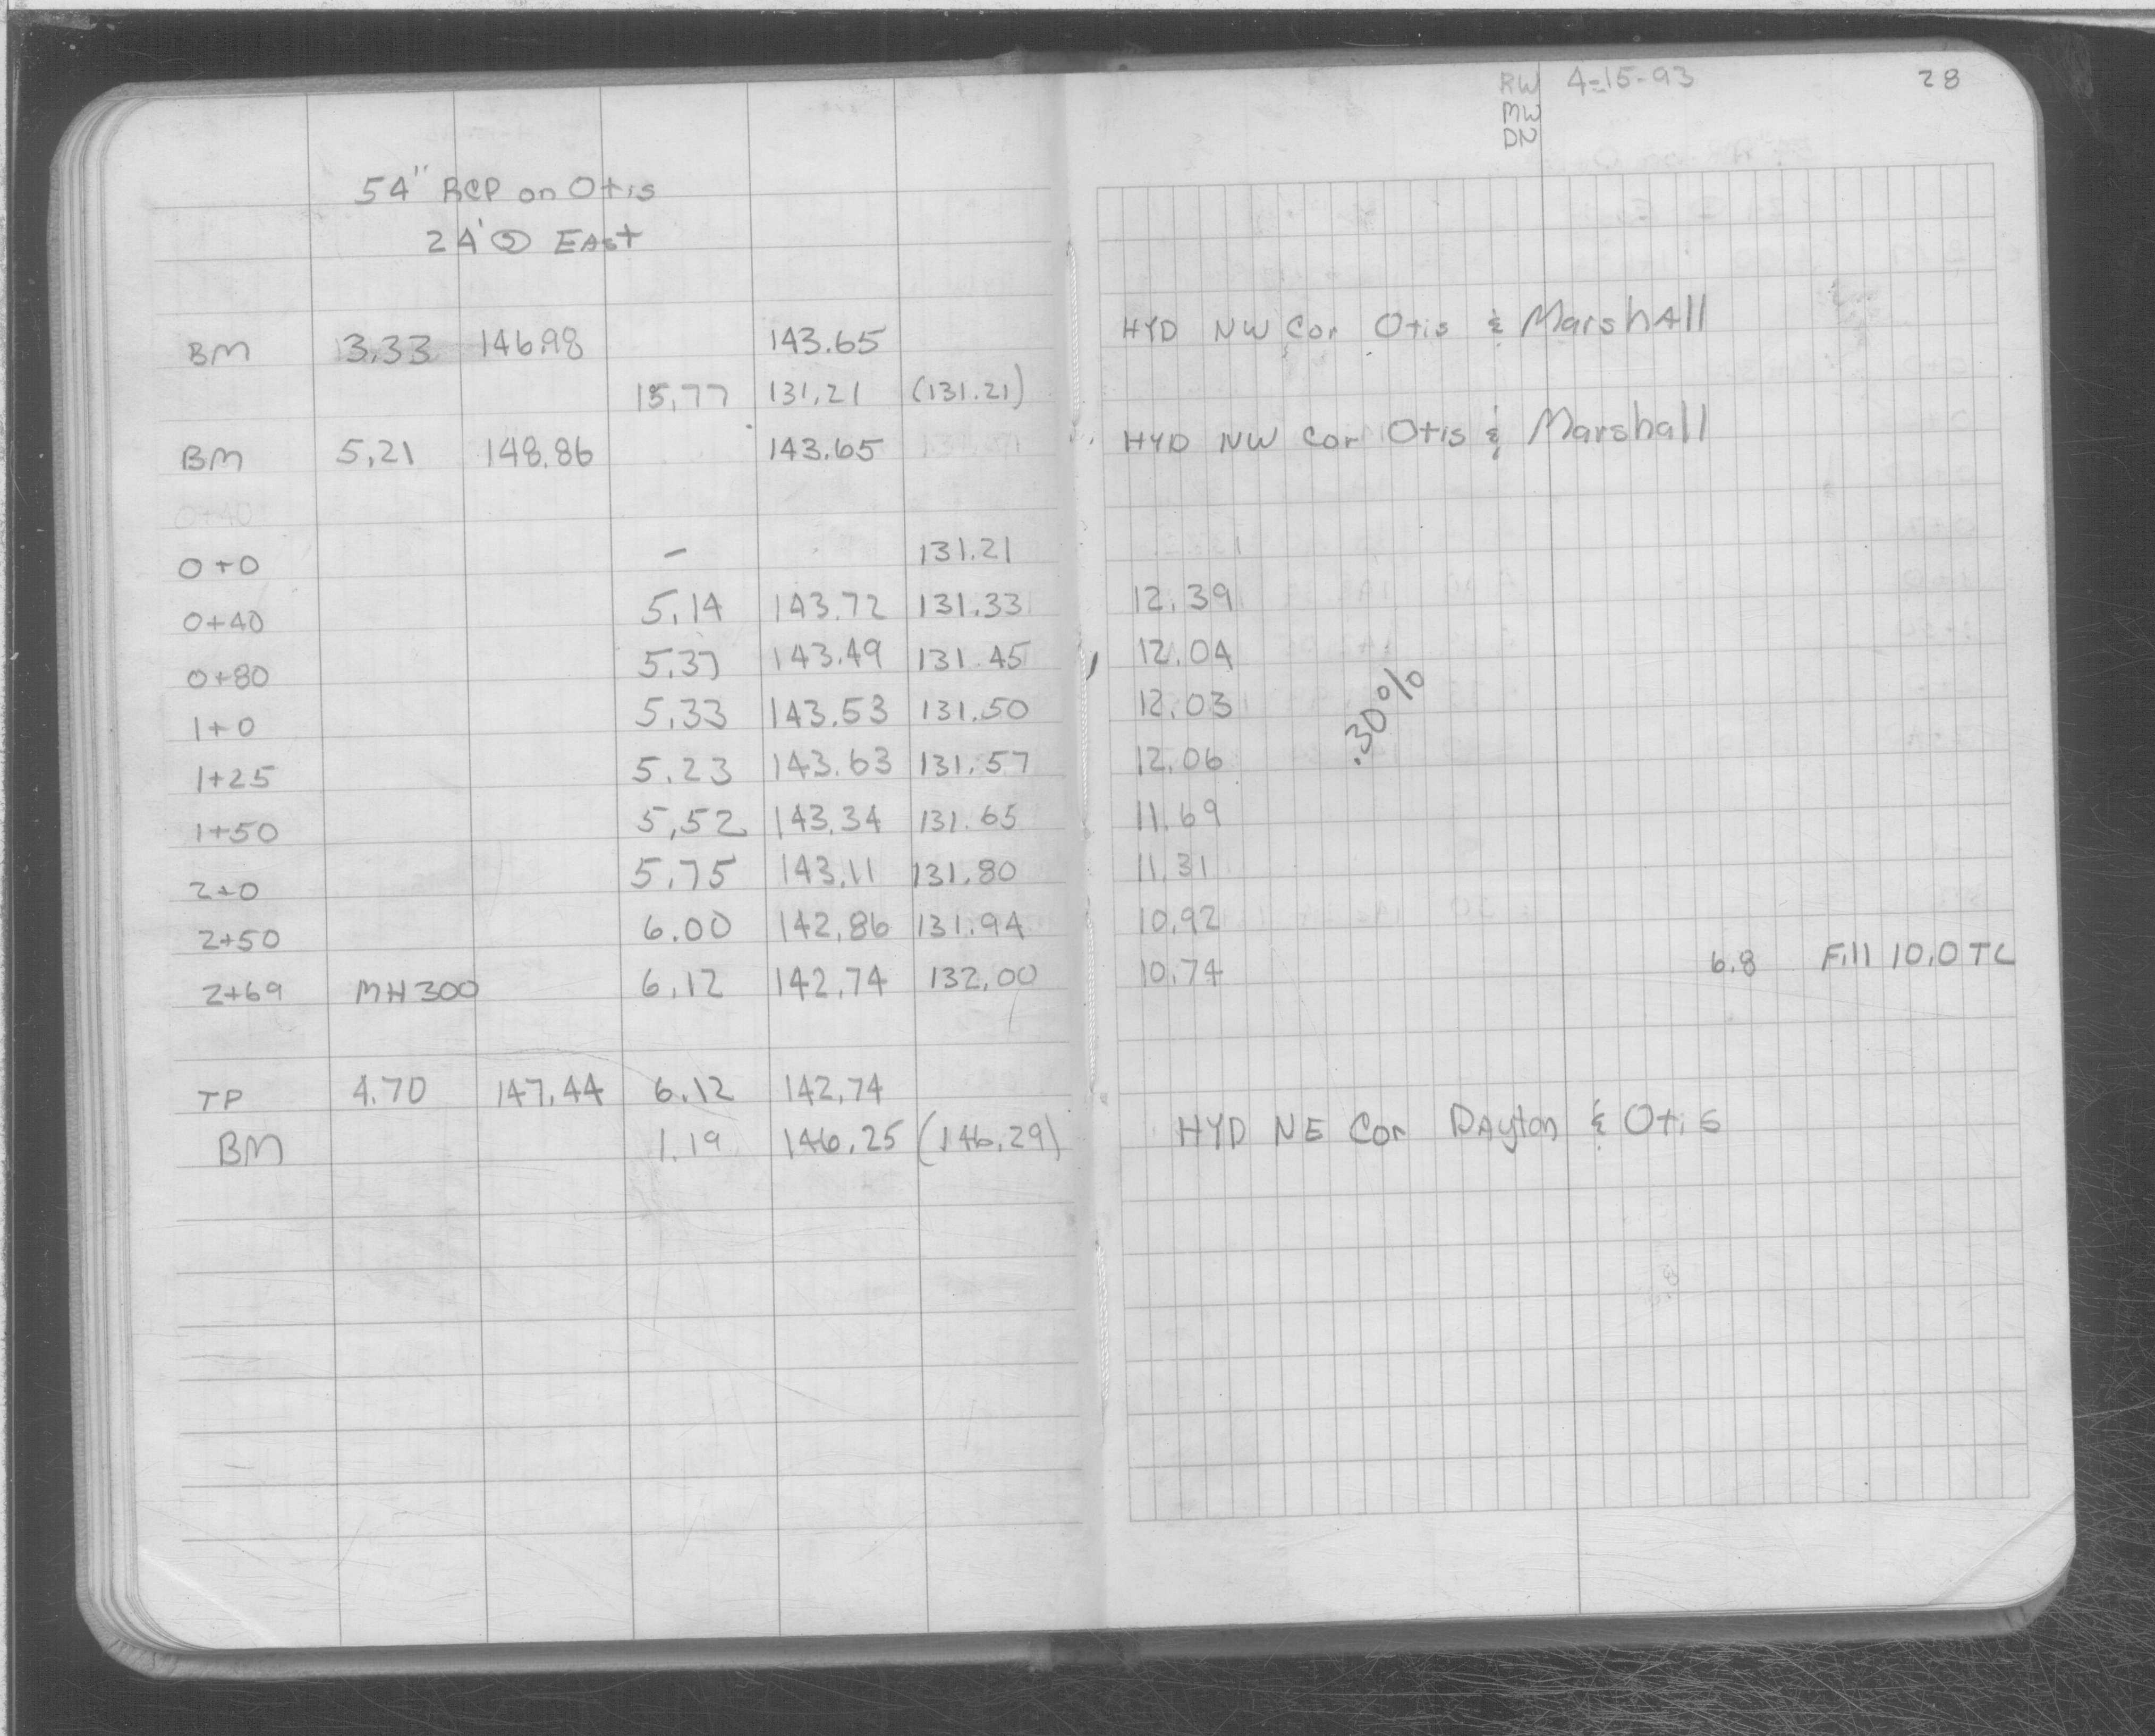 RW 4-15-93 28
MW
DN
54" RCP on Otis
24' O East
BM 3.33 146.98 143.65 HYD NW Cor Otis & Marshall
15.77 131.21 (131.21)
BM 5.21 148.86 143.65 HYD NW Cor Otis & Marshall
0+40
0+0 - 131.21
0+40 5.14 143.72 131.33 12.39
0+80 5.37 143.49 131.45 12.04
1+0 5.33 143.53 131.50 12.03
.30%
1+25 5.23 143.63 131.57 12.06
1+50 5.52 143.34 131.65 11.69
2+0 5.75 143.11 131.80 11.31
2+50 6.00 142.86 131.94 10.92
2+69 MH 300 6.12 142.74 132.00 10.74 6.8 Fill 10.0 TC
TP 4.70 147.44 6.12 142.74
BM 1.19 146.25 (146.29) HYD NE Cor Dayton & Otis